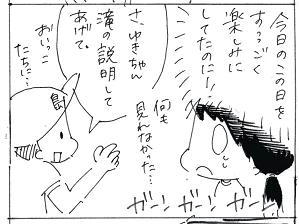 今日のこの日を
すっっごく
楽しみに
してたのにー!
何も
見れなかった…
ガーン ガーン ガーン
さ、ゆきちゃん
滝の説明して
あげて。
おいっこ
たちに…
島